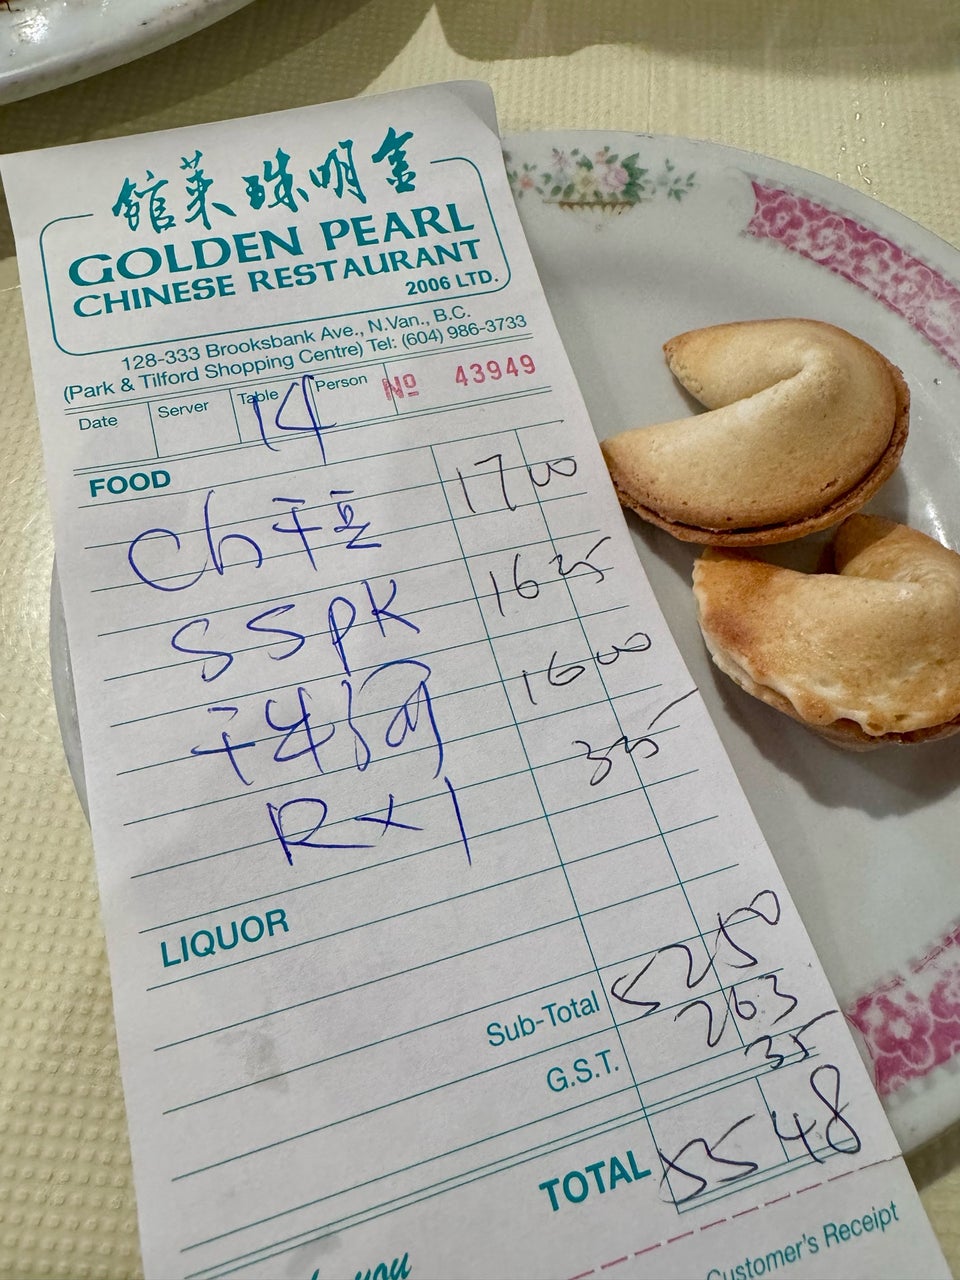 金明珠菜館
GOLDEN PEARL
CHINESE RESTAURANT
2006 LTD.
128-333 Brooksbank Ave., N.Van., B.C.
(Park & Tilford Shopping Centre) Tel: (604) 986-3733
Date Server Table 14 Person Nº 43949
FOOD
Ch 17 00
SSPK 16 25
干炒河 16 00
R x 1 3 25
LIQUOR
Sub-Total 52 50
G.S.T. 2 63
35
TOTAL 55 48
you
Customer's Receipt